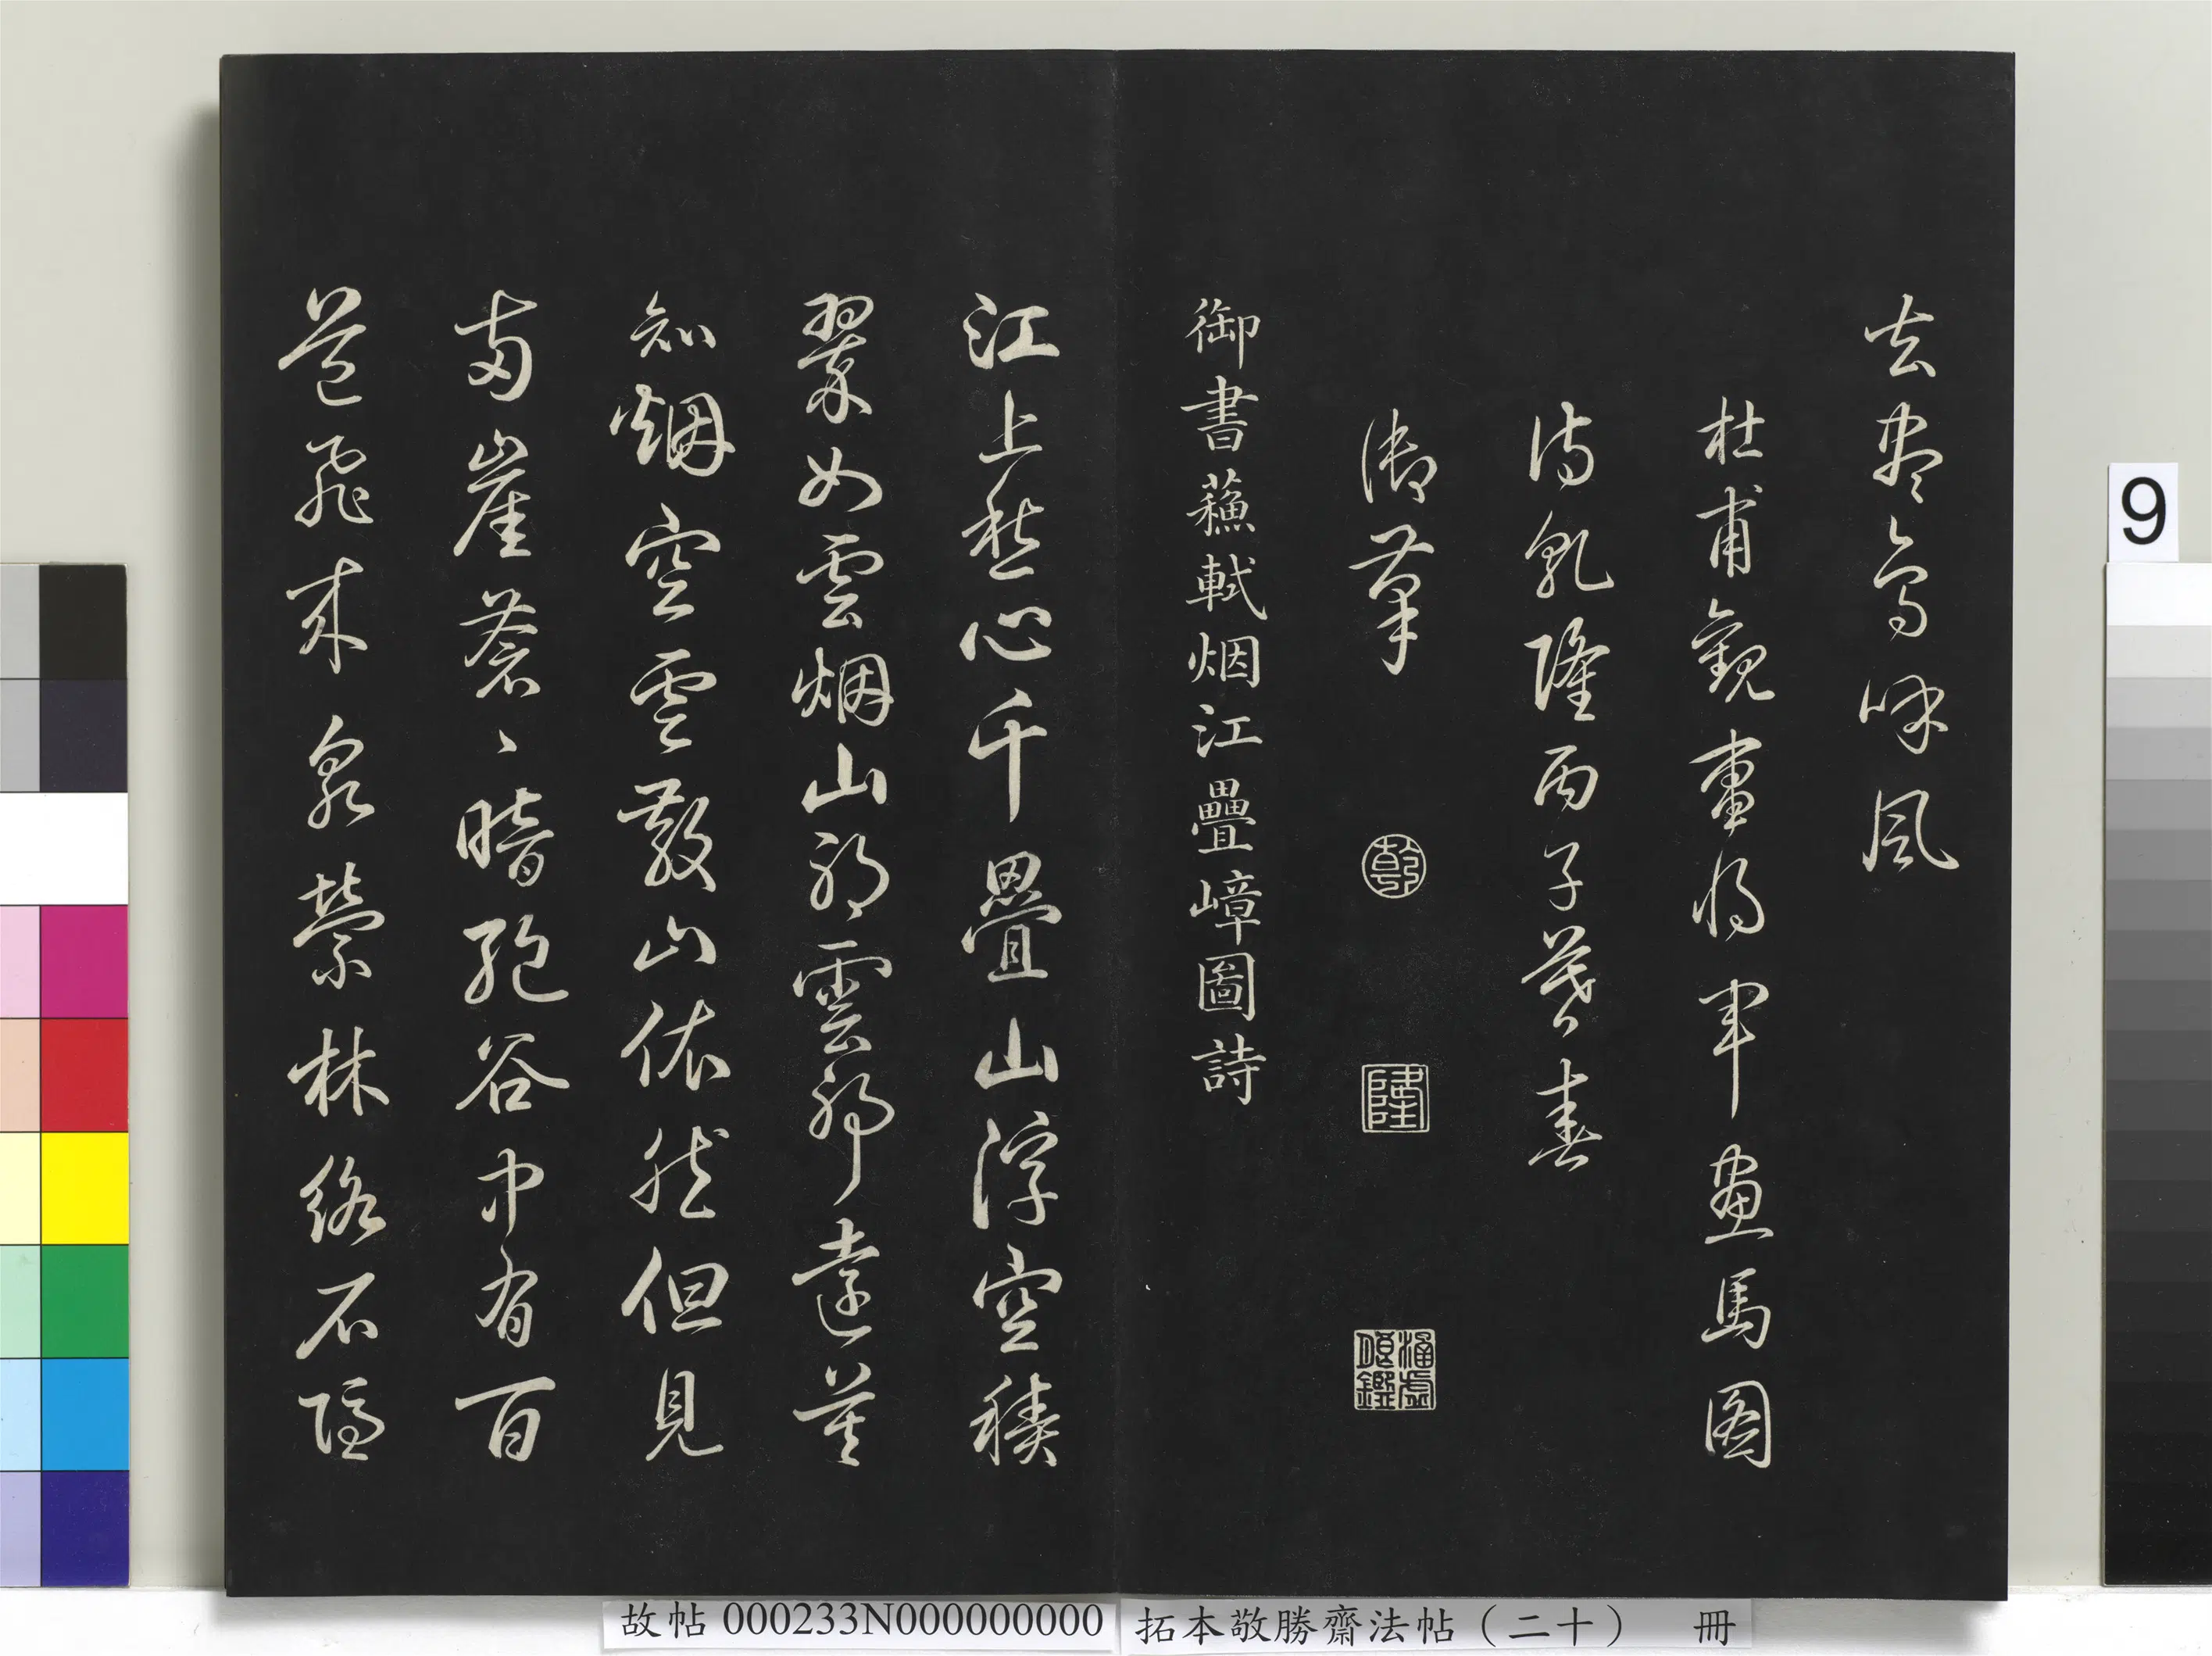 去盡鳥呼風
杜甫觀曹將軍畫馬圖
詩乾隆丙子暮春
御筆
乾
隆
涵虛朗鑑
御書蘇軾烟江疊嶂圖詩
江上愁心千疊山浮空積
翠如雲烟山耶雲耶遠莫
知烟空雲散山依然但見
兩崖蒼〻暗絕谷中有百
道飛來泉縈林絡石隱
9
故帖 000233N000000000
拓本敬勝齋法帖（二十） 冊